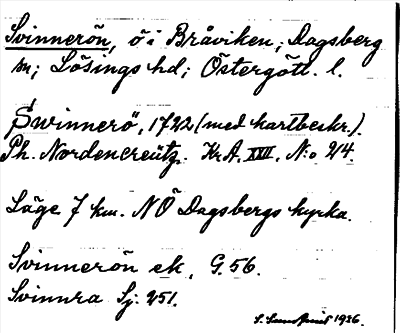 Svinnerön, ö i Bråviken; Dagsberg
sn; Lösings hd; Östergötl. l.
Swinnerö, 1722 (med kartbeskr.).
Ph. Nordencreutz. Kr.A. XVII, N:o 214.
Läge 7 km. NÖ Dagsbergs kyrka.
Svinnerön ek. G. 56.
Svinnra Sj: 251.
1926.